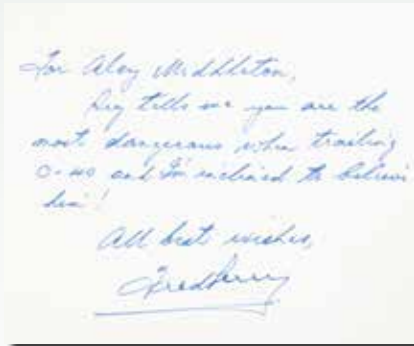 For Alex Middleton,
Reg tells me you are the
most dangerous when trailing
0-40 and I'm inclined to believe
him!
All best wishes,
Fred Perry